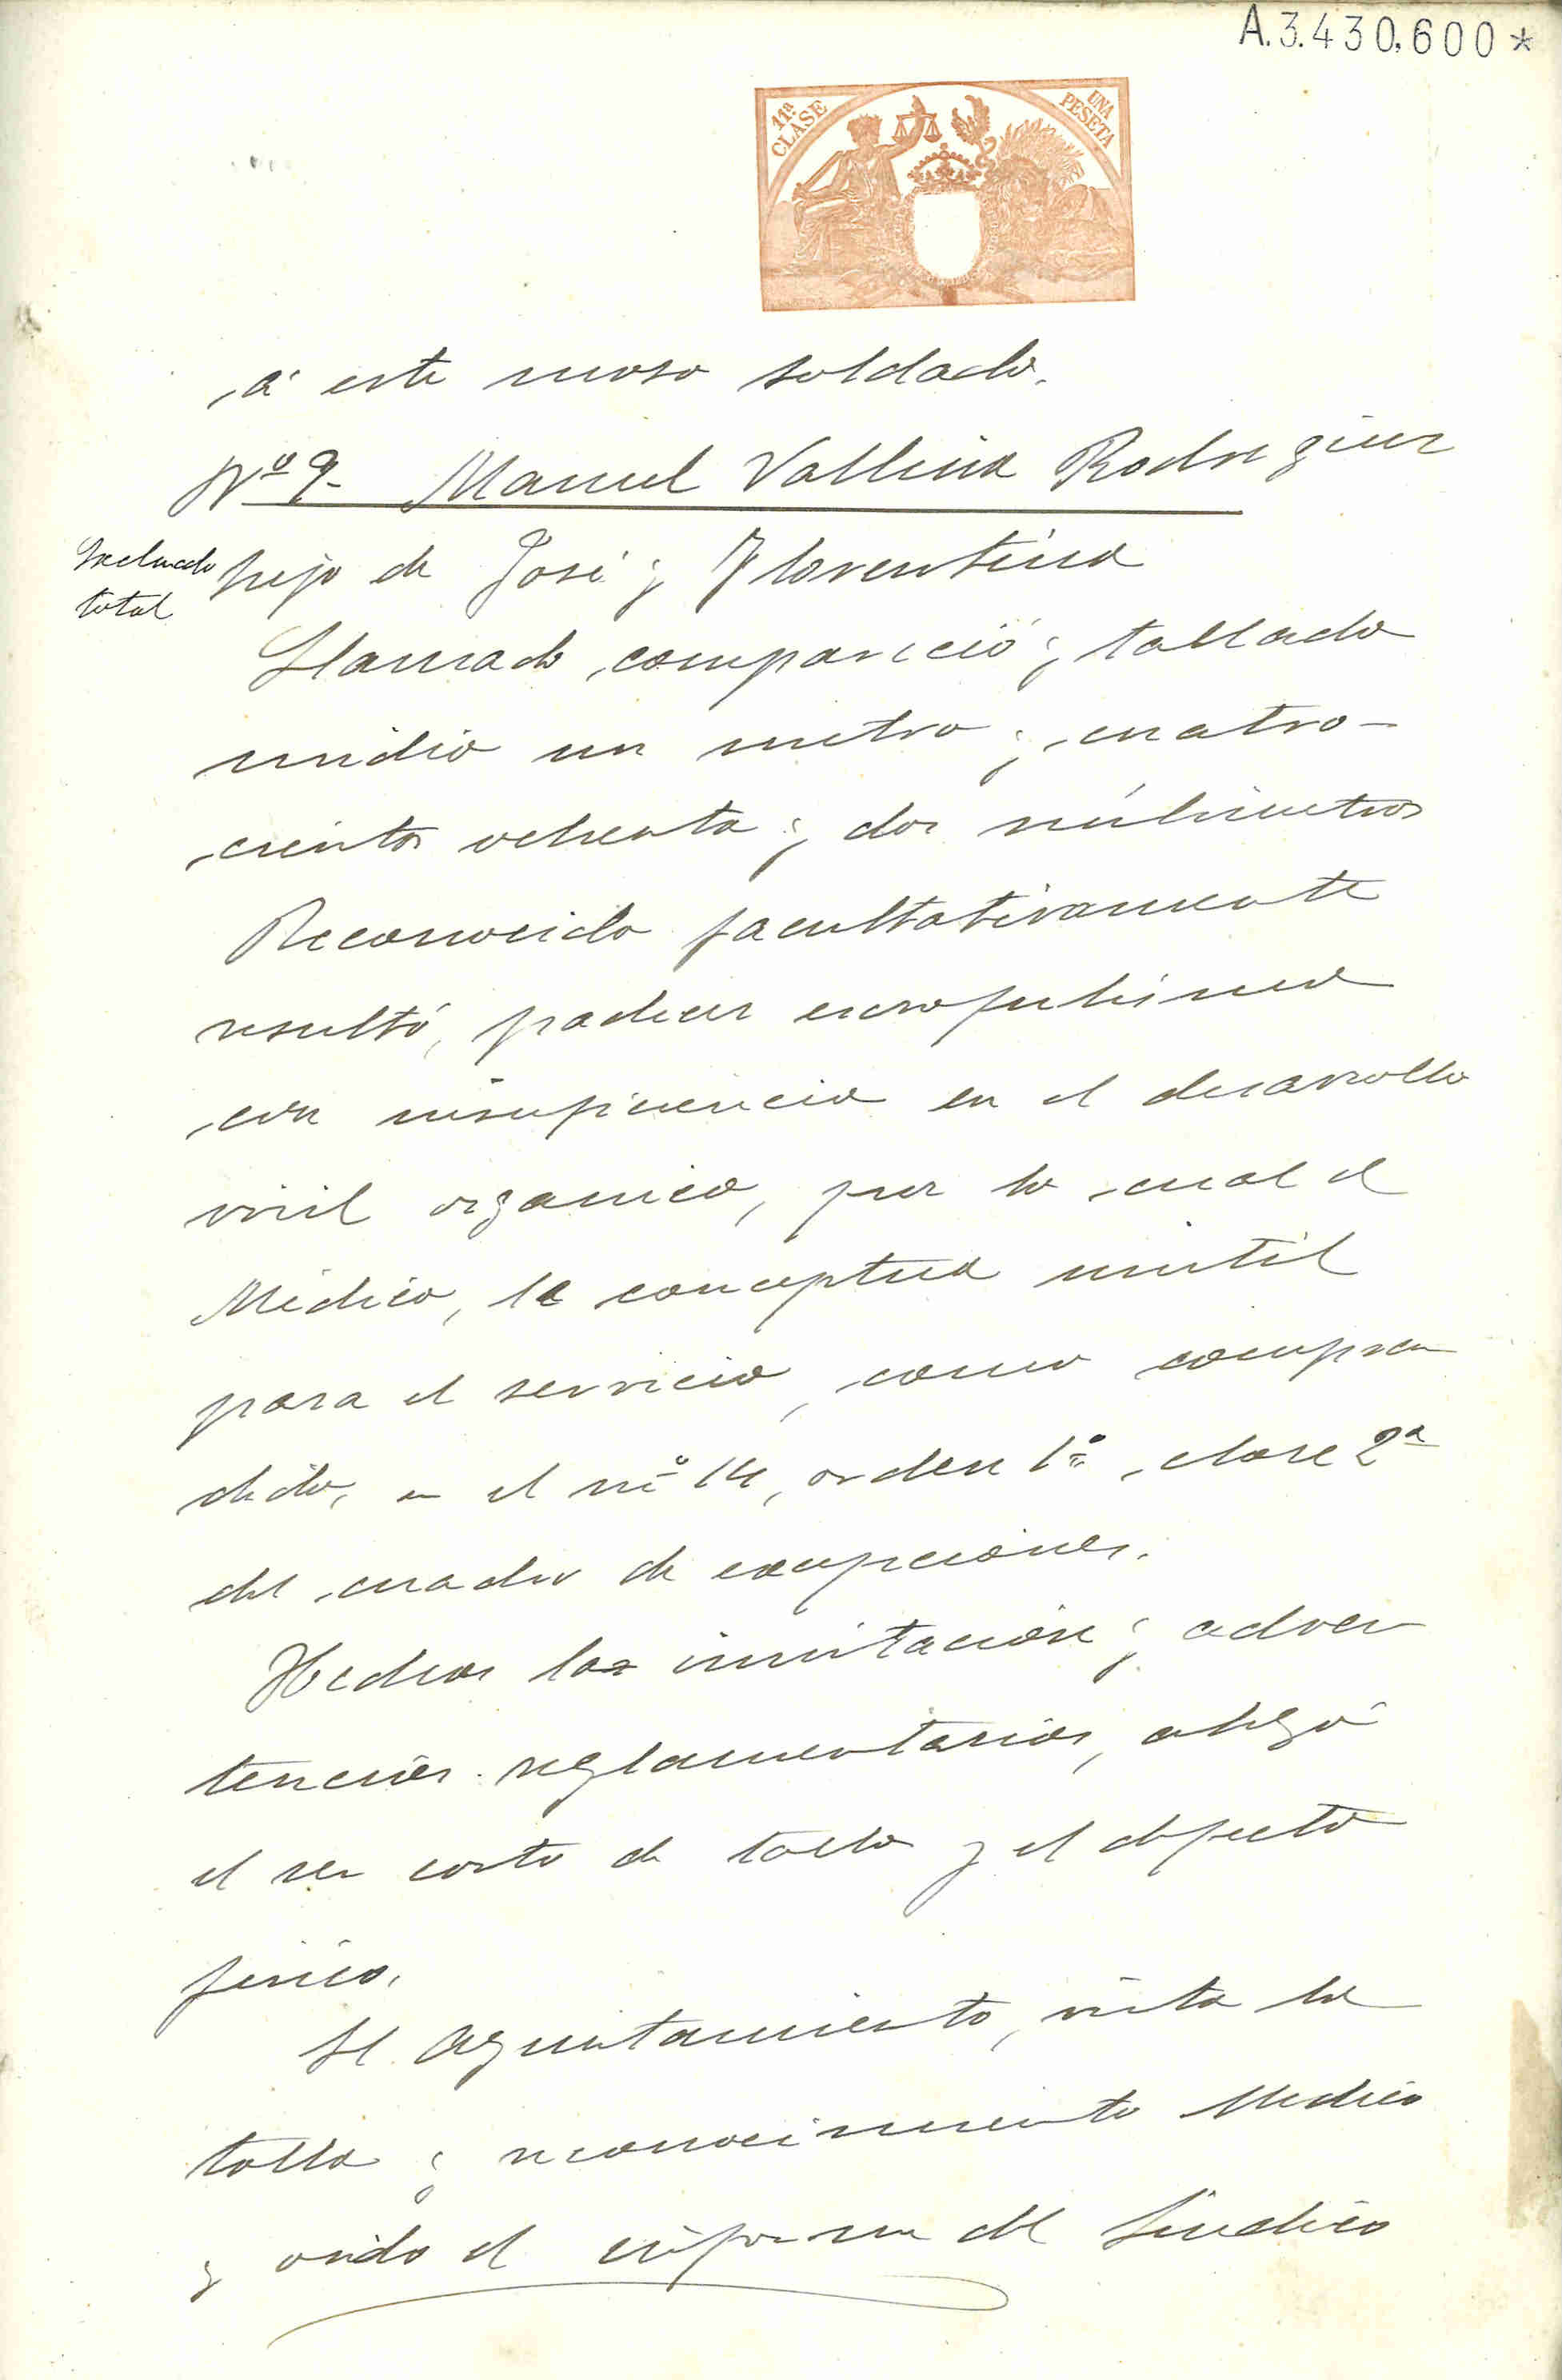 A.3.430,600*
11ª CLASE
UNA PESETA
á este mozo soldado.
Nº 9- Manuel Vallina Rodriguez
Excluido
total
hijo de José y Florentina
Llamado compareció y tallado
midio un metro y cuatro-
cientos ochenta y dos milimetros
Reconocido facultativamente
resultó, padecer escrofulismo
con insuficiencia en el desarrollo
viril organico, por lo cual el
Médico, le conceptua inutil
para el servicio, como compren
dido, en el nº 14, orden 1º, clase 2ª
del cuadro de exenpciones.
Hechas las invitacion y adver
tencias reglamentarias, alegó
el ser corto de talla y el defecto
fisico.
El Ayuntamiento, vista la
talla y reconocimiento Medico
y oido el informe del Sindico